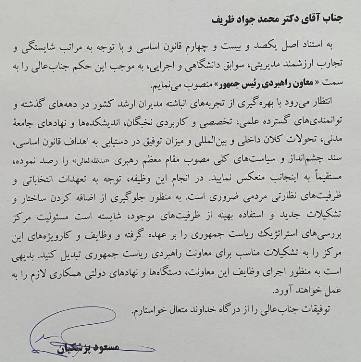 جناب آقای دکتر محمد جواد ظریف
به استناد اصل یکصد و بیست و چهارم قانون اساسی و با توجه به مراتب شایستگی و
تجارب ارزشمند مدیریتی، سوابق دانشگاهی و اجرایی، به موجب این حکم جناب‌عالی را به
سمت «معاون راهبردی رئیس جمهور» منصوب می‌نمایم.
انتظار می‌رود با بهره‌گیری از تجربه‌های انباشته مدیران ارشد کشور در دهه‌های گذشته و
توانمندی‌های گسترده علمی، تخصصی و کاربردی نخبگان، اندیشکده‌ها و نهادهای جامعۀ
مدنی، تحولات کلان داخلی و بین‌المللی و میزان توفیق در دستیابی به اهداف قانون اساسی،
سند چشم‌انداز و سیاست‌های کلی مصوب مقام معظم رهبری (مدظله‌العالی) را رصد نموده،
مستقیماً به اینجانب منعکس نمایید. در انجام این وظیفه، توجه به تعهدات انتخاباتی و
ظرفیت‌های نظارتی مردمی ضروری است. به منظور جلوگیری از اضافه کردن ساختار و
تشکیلات جدید و استفاده بهینه از ظرفیت‌های موجود، شایسته است مسئولیت مرکز
بررسی‌های استراتژیک ریاست جمهوری را بر عهده گرفته و وظایف و کارویژه‌های این
مرکز را به تشکیلات مناسب برای معاونت راهبردی ریاست جمهوری تبدیل کنید. بدیهی
است به منظور اجرای وظایف این معاونت، دستگاه‌ها و نهادهای دولتی همکاری لازم را به
عمل خواهند آورد.
توفیقات جناب‌عالی را از درگاه خداوند متعال خواستارم.
مسعود پزشکیان